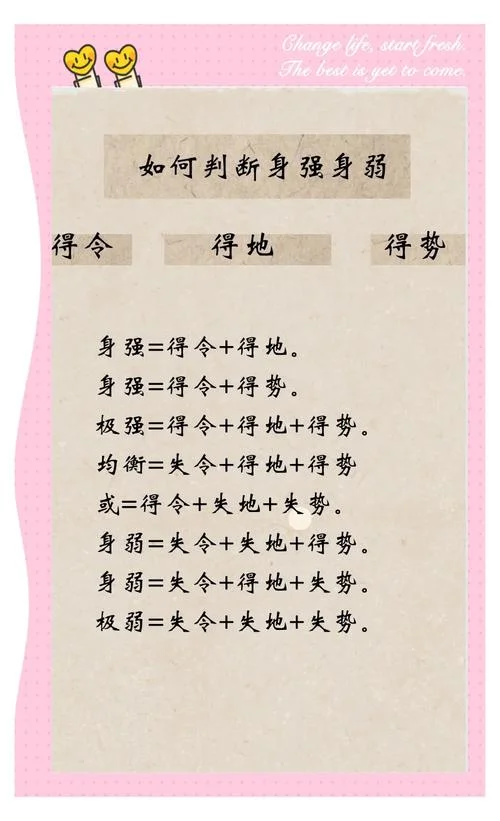 Change life, start fresh.
The best is yet to come.
如何判断身强身弱
得令 得地 得势
身强=得令+得地。
身强=得令+得势。
极强=得令+得地+得势。
均衡=失令+得地+得势
或=得令+失地+失势。
身弱=失令+失地+得势。
身弱=失令+得地+失势。
极弱=失令+失地+失势。